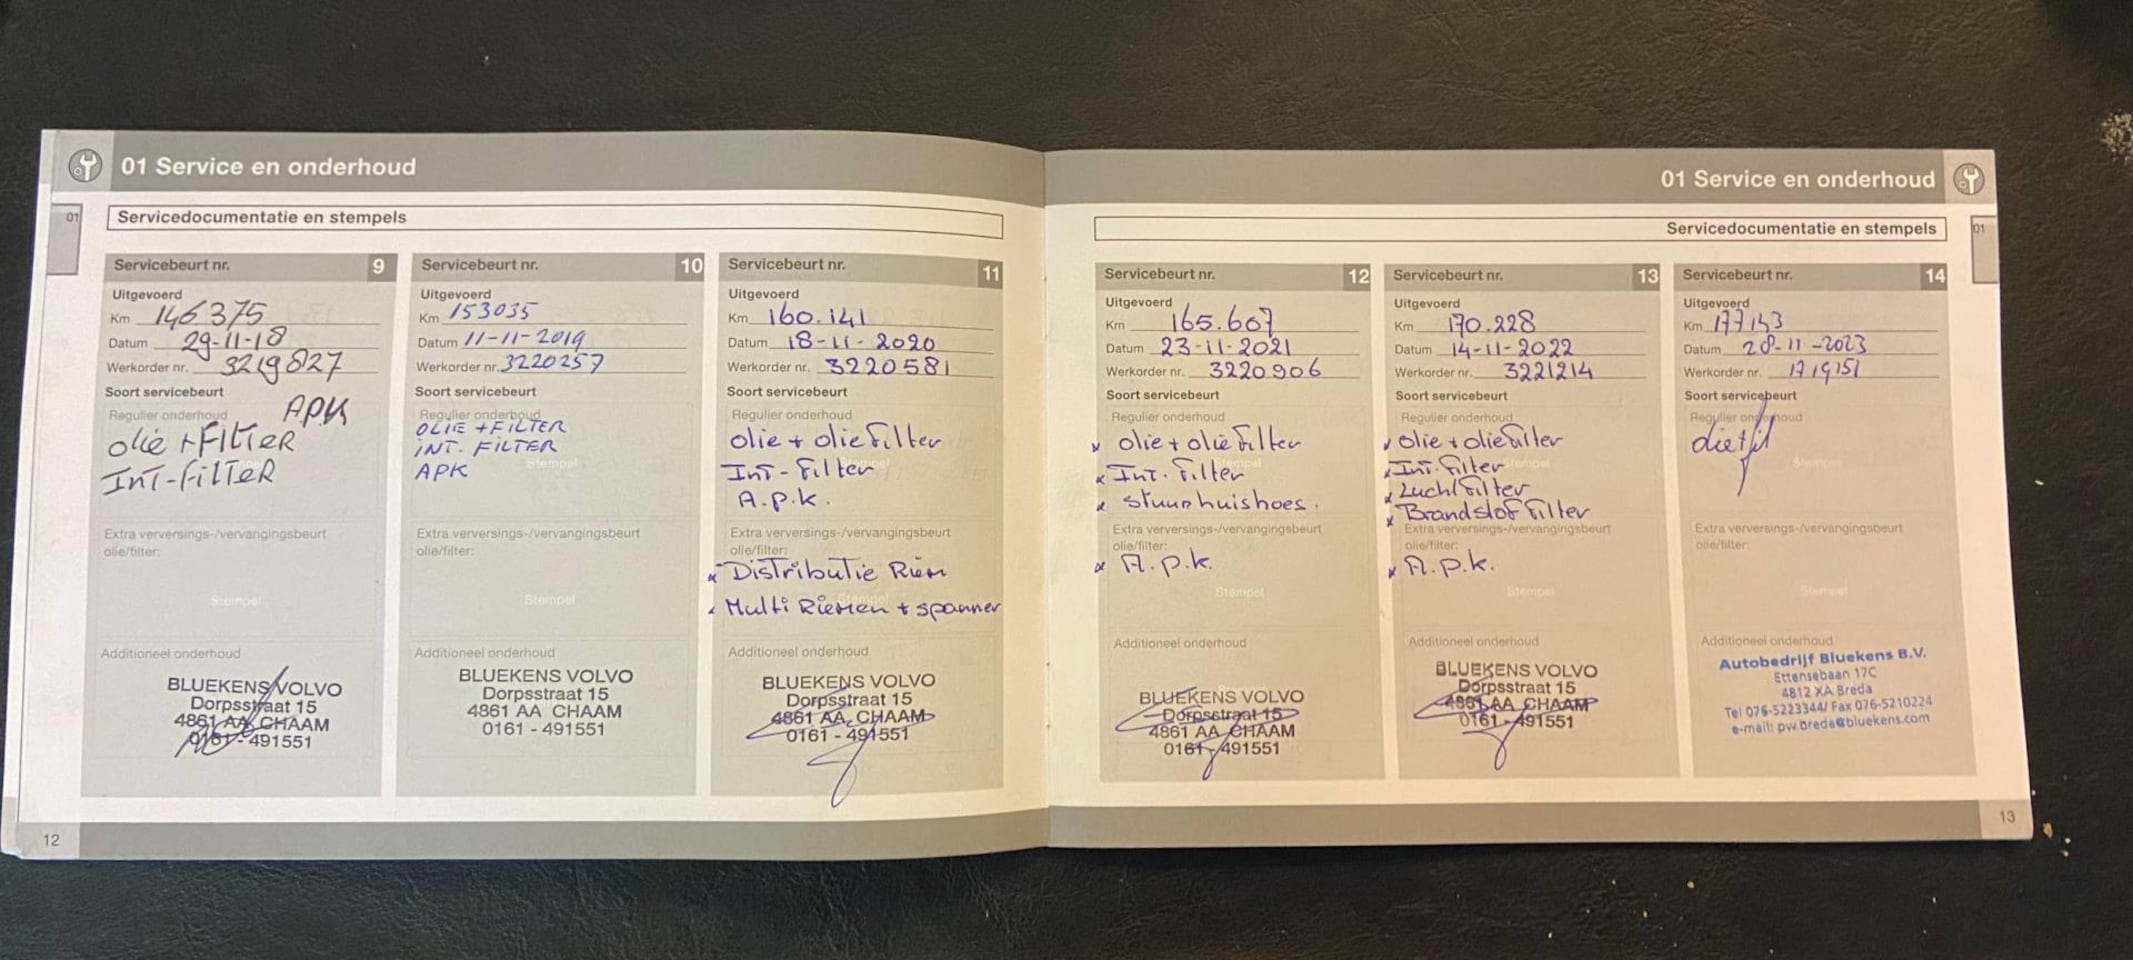 01 Service en onderhoud
01
Servicedocumentatie en stempels
Servicebeurt nr. 9
Uitgevoerd
Km 146375
Datum 29-11-18
Werkorder nr. 3219827
Soort servicebeurt
Regulier onderhoud APK
olie + FILTER
INT-FILTER
Extra verversings-/vervangingsbeurt
olie/filter:
Stempel
Additioneel onderhoud
BLUEKENS VOLVO
Dorpsstraat 15
4861 AA CHAAM
0161 - 491551
Servicebeurt nr. 10
Uitgevoerd
Km 153035
Datum 11-11-2019
Werkorder nr. 3220257
Soort servicebeurt
Regulier onderhoud
OLIE + FILTER
INT. FILTER
Stempel
APK
Extra verversings-/vervangingsbeurt
olie/filter:
Stempel
Additioneel onderhoud
BLUEKENS VOLVO
Dorpsstraat 15
4861 AA CHAAM
0161 - 491551
Servicebeurt nr. 11
Uitgevoerd
Km 160.141
Datum 18-11-2020
Werkorder nr. 3220581
Soort servicebeurt
Regulier onderhoud
olie + olie filter
Int-filter
A.p.k.
Extra verversings-/vervangingsbeurt
olie/filter:
x Distributie Riem
Stempel
Multi Riemen + spanner
Additioneel onderhoud
BLUEKENS VOLVO
Dorpsstraat 15
4861 AA CHAAM
0161 - 491551
12
01 Service en onderhoud
01
Servicedocumentatie en stempels
Servicebeurt nr. 12
Uitgevoerd
Km 165.607
Datum 23-11-2021
Werkorder nr. 3220906
Soort servicebeurt
Regulier onderhoud
x olie + olie filter
x Int. filter
x stuurhuishoes.
Extra verversings-/vervangingsbeurt
olie/filter:
x A.p.k.
Stempel
Additioneel onderhoud
BLUEKENS VOLVO
Dorpsstraat 15
4861 AA CHAAM
0161 - 491551
Servicebeurt nr. 13
Uitgevoerd
Km 170.228
Datum 14-11-2022
Werkorder nr. 3221214
Soort servicebeurt
Regulier onderhoud
x olie + olie filter
x Int. filter
Stempel
x Luchtfilter
x Brandstof filter
Extra verversings-/vervangingsbeurt
olie/filter:
x A.p.k.
Stempel
Additioneel onderhoud
BLUEKENS VOLVO
Dorpsstraat 15
4861 AA CHAAM
0161 - 491551
Servicebeurt nr. 14
Uitgevoerd
Km 177153
Datum 28-11-2023
Werkorder nr. 1719151
Soort servicebeurt
Regulier onderhoud
Stempel
Extra verversings-/vervangingsbeurt
olie/filter:
Stempel
Additioneel onderhoud
Autobedrijf Bluekens B.V.
Ettensebaan 17C
4812 XA Breda
Tel 076-5223344/ Fax 076-5210224
e-mail: pw.breda@bluekens.com
13